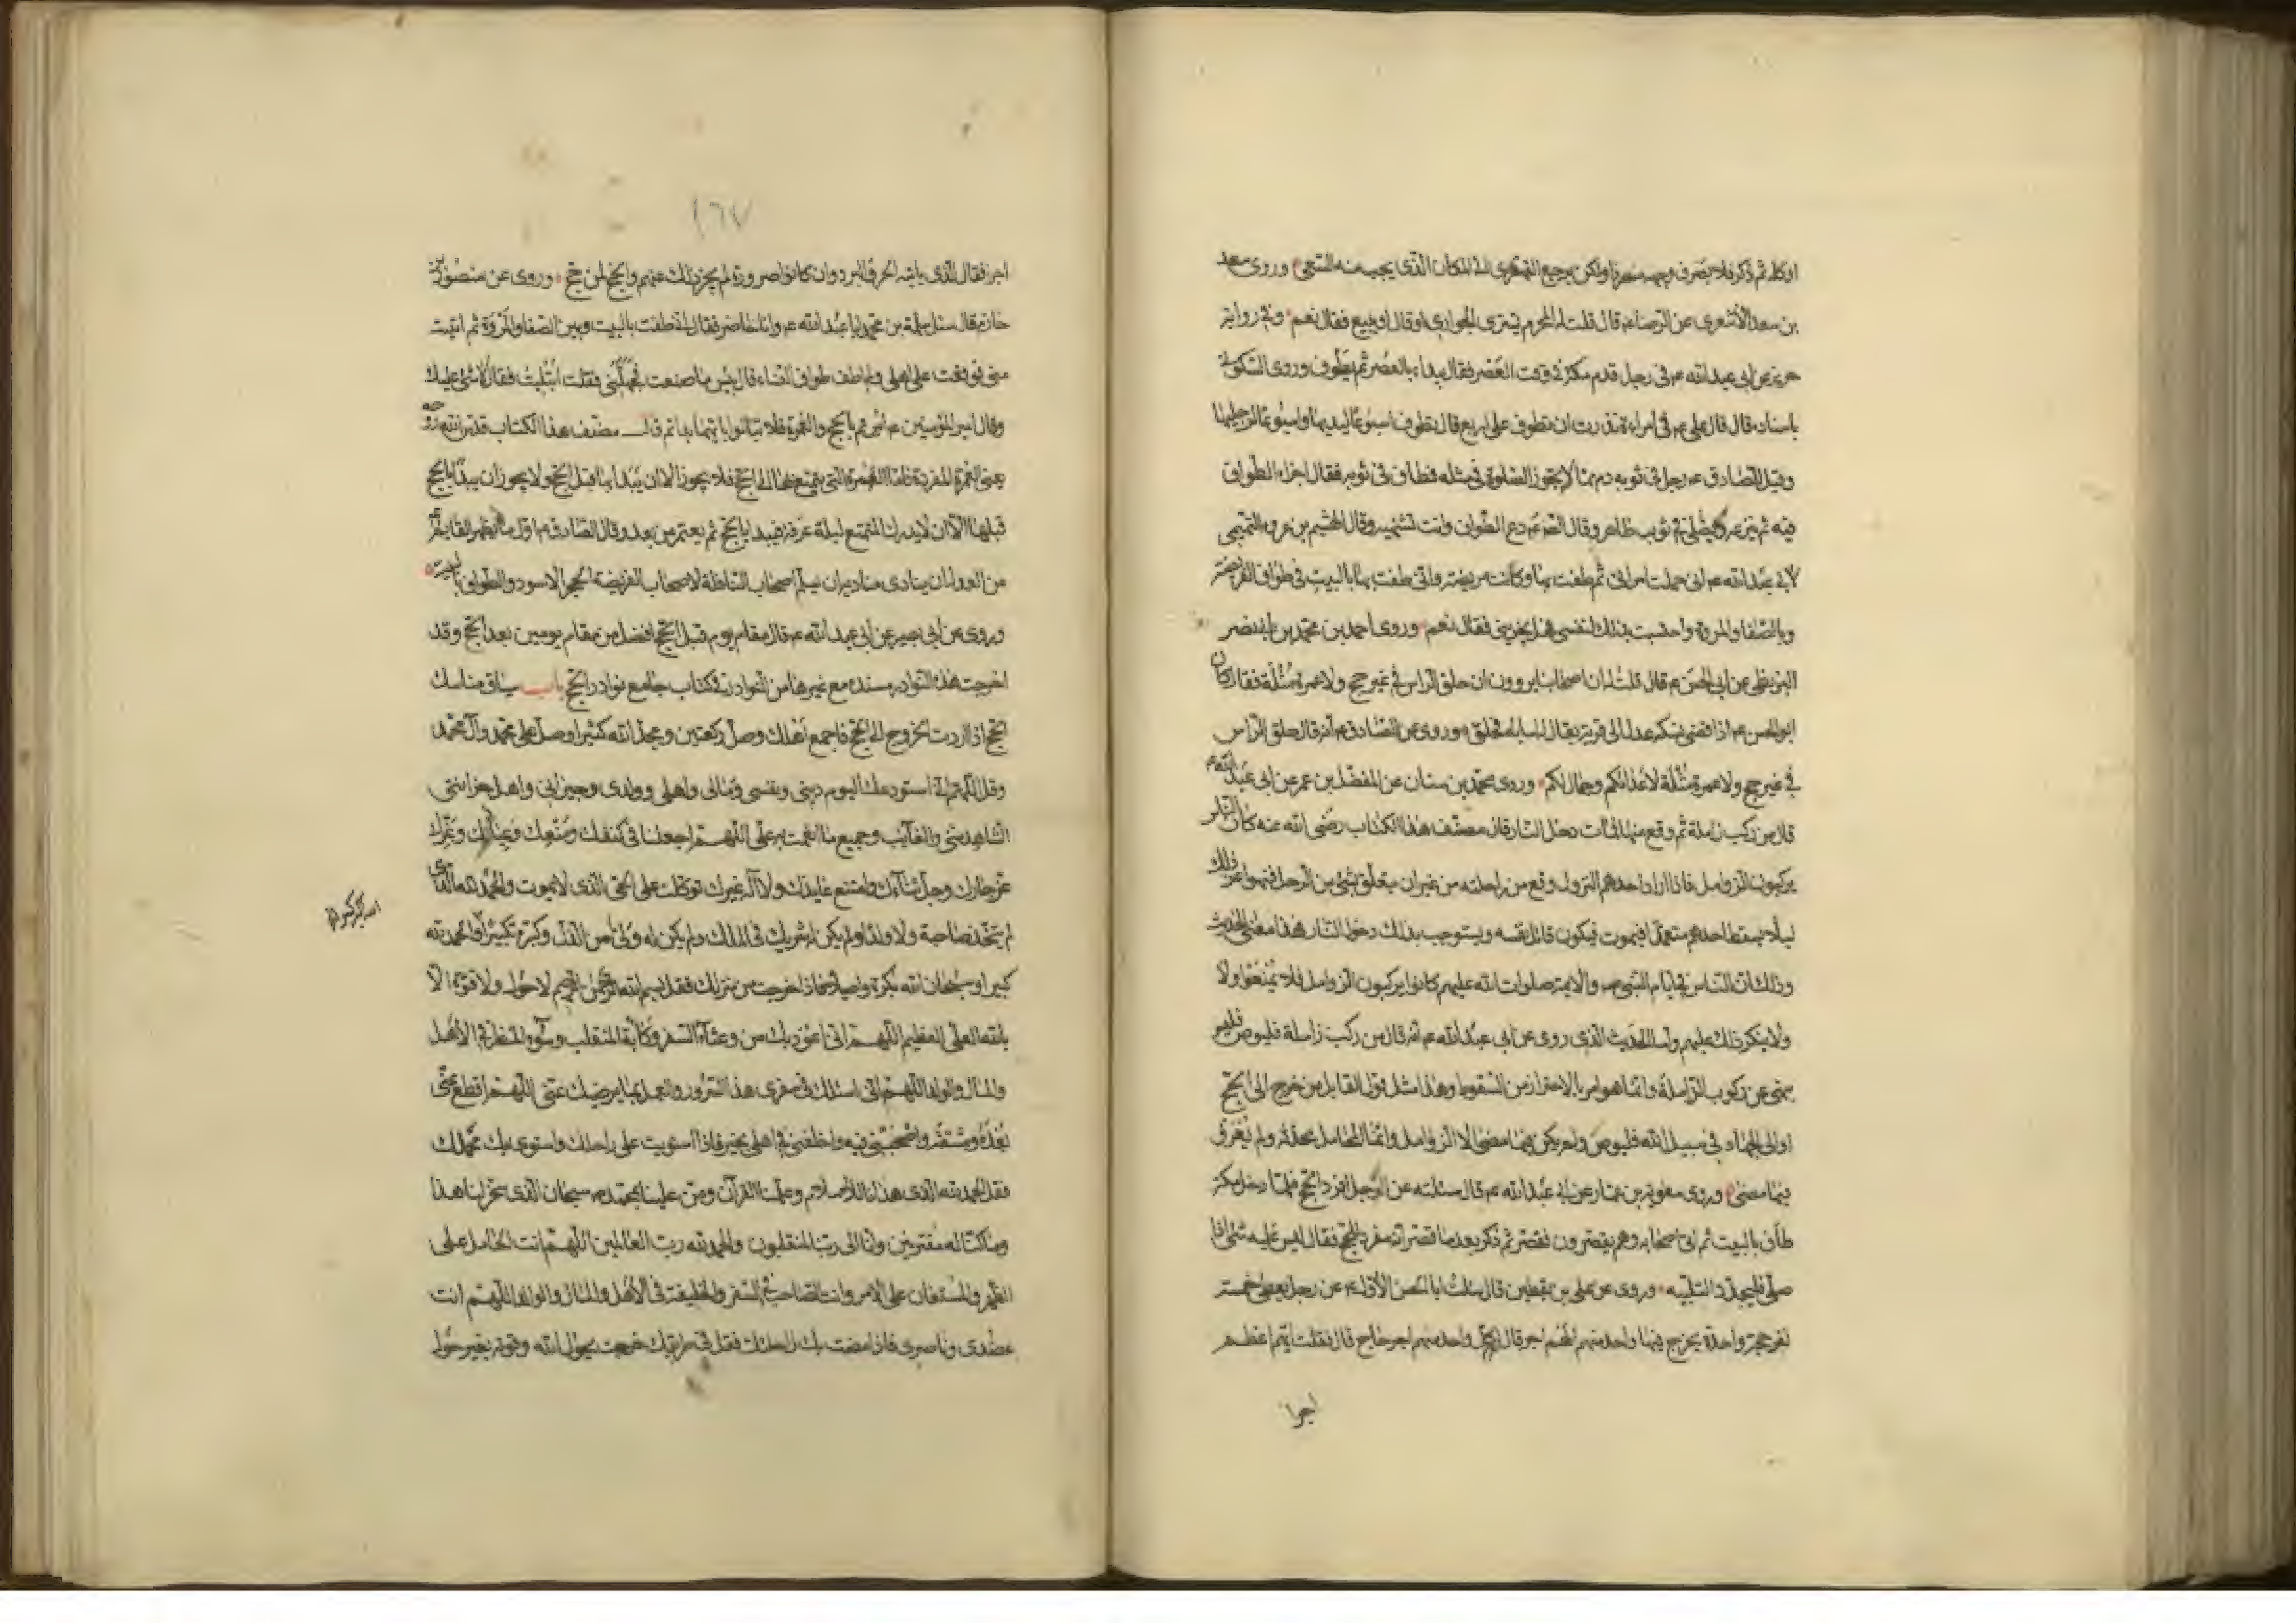 او كله ثم ذكر فلا يصرف وجهه منصرفا ولكن يرجع القهقرى الى المكان الذى يجب منه السعى وروى سعد
بن سعد الأشعرى عن الرضا ع قال قلت له المحرم يشترى الجوارى او قال او يبيع فقال نعم وفى رواية
حريز عن ابى عبد الله ع فى رجل قدم مكة فى وقت العصر فقال يبداء بالعصر ثم يطوف وروى السكونى
باسناده قال قال على ع فى امراءة نذرت ان تطوف على اربع قال تطوف اسبوعا ليديها واسبوعا لرجليها
وقيل للصادق ع رجل فى ثوبه دم مما لا يجوز الصلوة فى مثله فطاف فى ثوبه فقال اجزاه الطواف
فيه ثم ينزعه ويصلى فى ثوب طاهر وقال الصادق ع دع الطواف وانت تشتهيه وقال الهيثم بن عروة التميمى
لابى عبد الله ع انى حملت امراتى ثم طفت بها وكانت مريضة وانى طفت بها بالبيت فى طواف الفريضة
وبالصفا والمروة واحتسبت بذلك لنفسى فهل يجزينى فقال نعم وروى احمد بن محمد بن ابى نصر
البزنطى عن ابى الحسن ع قال قلت له ان اصحابنا يروون ان حلق الراس فى غير حج ولا عمرة مثلة فقال كان
ابو الحسن ع اذا قضى نسكه عدل الى قرية يقال لها سايه فحلق وروى عن الصادق ع انه قال حلق الراس
فى غير حج ولا عمرة مثلة لاعدائكم وجمال لكم وروى محمد بن سنان عن المفضل بن عمر عن ابى عبد الله ع
قال من ركب زاملة ثم وقع منها فمات دخل النار قال مصنف هذا الكتاب رضى الله عنه كان الناس
يركبون الزوامل فاذا اراد احدهم النزول وقع من راحلته من غير ان يتعلق بشئ من الرحل فنهوا عن ذلك
ليلا يسقط احدهم متعمدا فيموت فيكون قاتل نفسه ويستوجب بذلك دخول النار فهذا معنى الحديث
وذلك ان الناس فى ايام النبى ص والايمة صلوات الله عليهم كانوا يركبون الزوامل فلا يمنعوا ولا
ولا ينكر ذلك عليهم واما الحديث الذى روى عن ابى عبد الله ع انه قال من ركب زاملة فليوص فليس
بنهى عن ركوب الزاملة وانما هو امر بالاحتراز من السقوط وهذا مثل قول القايل من خرج الى الحج
او الى الجهاد فى سبيل الله فليوص ولم يكن فيما مضى الا الزوامل وانما المحامل محدثة ولم تعرف
فيما مضى وروى معوية بن عمار عن ابى عبد الله ع قال سئلته عن الرجل افرد الحج فلما دخل مكة
طاف بالبيت ثم اتى اصحابه وهم يقصرون فقصر ثم ذكر بعد ما قصر انه مفرد للحج فقال ليس عليه شئ اذا
صلى فليجدد التلبيه وروى عن على بن يقطين قال سئلت ابا الحسن الاول ع عن رجل يعطى خمسة
نفر حجة واحدة يخرج فيها واحد منهم الهم اجر قال لكل واحد منهم اجر حاج قال فقلت ايهم اعظم
اجرا
١٦٧
اجرا فقال الذى يابه الحر والبرد وان كانوا صرورة لم يجز ذلك عنهم والحج لمن حج وروى عن منصور بن
حازم قال سئل سلمة بن محمد ابا عبد الله ع وانا حاضر فقال انى طفت بالبيت وبين الصفا والمروة ثم اتيت
منى فوقعت على اهلى ولم اطف طواف النساء قال بئس ما صنعت فجهلنى فقلت ابتليت فقال لا شئ عليك
وقال امير المؤمنين ع امرتم بالحج والعمرة فلا تبالوا بايهما بداتم قال مصنف هذا الكتاب قدس الله روحه
يعنى العمرة المفردة فاما العمرة التى يتمتع بها الى الحج فلا يجوز الا ان يبدا بها قبل الحج ولا يجوز ان يبدا بالحج
قبلها الا ان لا يدرك المتمتع ليلة عرفة فيبدا بالحج ثم يعتمر من بعد وقال الصادق ع اول ما يظهر القايم
من العدل ان ينادى مناديه ان يسلم اصحاب النافلة لاصحاب الفريضة الحجر الاسود والطواف بالبيت
وروى عن ابى بصير عن ابى عبد الله ع قال مقام يوم قبل الحج افضل من مقام يومين بعد الحج وقد
اخرجت هذه النوادر مسندة مع غيرها من النوادر فى كتاب جامع نوادر الحج باب سياق مناسك
الحج اذا اردت الخروج الى الحج فاجمع اهلك وصل ركعتين ومجد الله كثيرا وصل على محمد وآل محمد
وقل اللهم انى استودعك اليوم دينى ونفسى ومالى واهلى وولدى وجيرانى واهل حزانتى
الشاهد منى والغايب وجميع ما انعمت به على اللهم اجعلنا فى كنفك ومنعك وعياذك وعزك
عز جارك وجل ثناءك وامتنع عايذك ولا اله غيرك توكلت على الحى الذى لا يموت والحمد لله الذى
لم يتخذ صاحبة ولا ولدا ولم يكن له شريك فى الملك ولم يكن له ولى من الذل وكبره تكبيرا والحمد لله
كبيرا وسبحان الله بكرة واصيلا فاذا خرجت من منزلك فقل بسم الله الرحمن الرحيم لا حول ولا قوة الا
بالله العلى العظيم اللهم انى اعوذ بك من وعثاء السفر وكابة المنقلب وسوء المنظر فى الاهل
والمال والولد اللهم انى اسئلك فى سفرى هذا السرور والعمل بما يرضيك عنى اللهم اقطع عنى
بعده ومشقته واصحبنى فيه واخلفنى فى اهلى بخير فاذا استويت على راحلتك واستوى بك محملك
فقل الحمد لله الذى هدانا للاسلام وعلمنا القرآن ومن علينا بمحمد ص سبحان الذى سخر لنا هذا
وما كنا له مقرنين وانا الى ربنا لمنقلبون والحمد لله رب العالمين اللهم انت الحامل على
الظهر والمستعان على الامر وانت الصاحب فى السفر والخليفة فى الاهل والمال والولد اللهم انت
عضدى وناصرى فاذا مضت بك راحلتك فقل فى طريقك خرجت بحول الله وقوته بغير حول